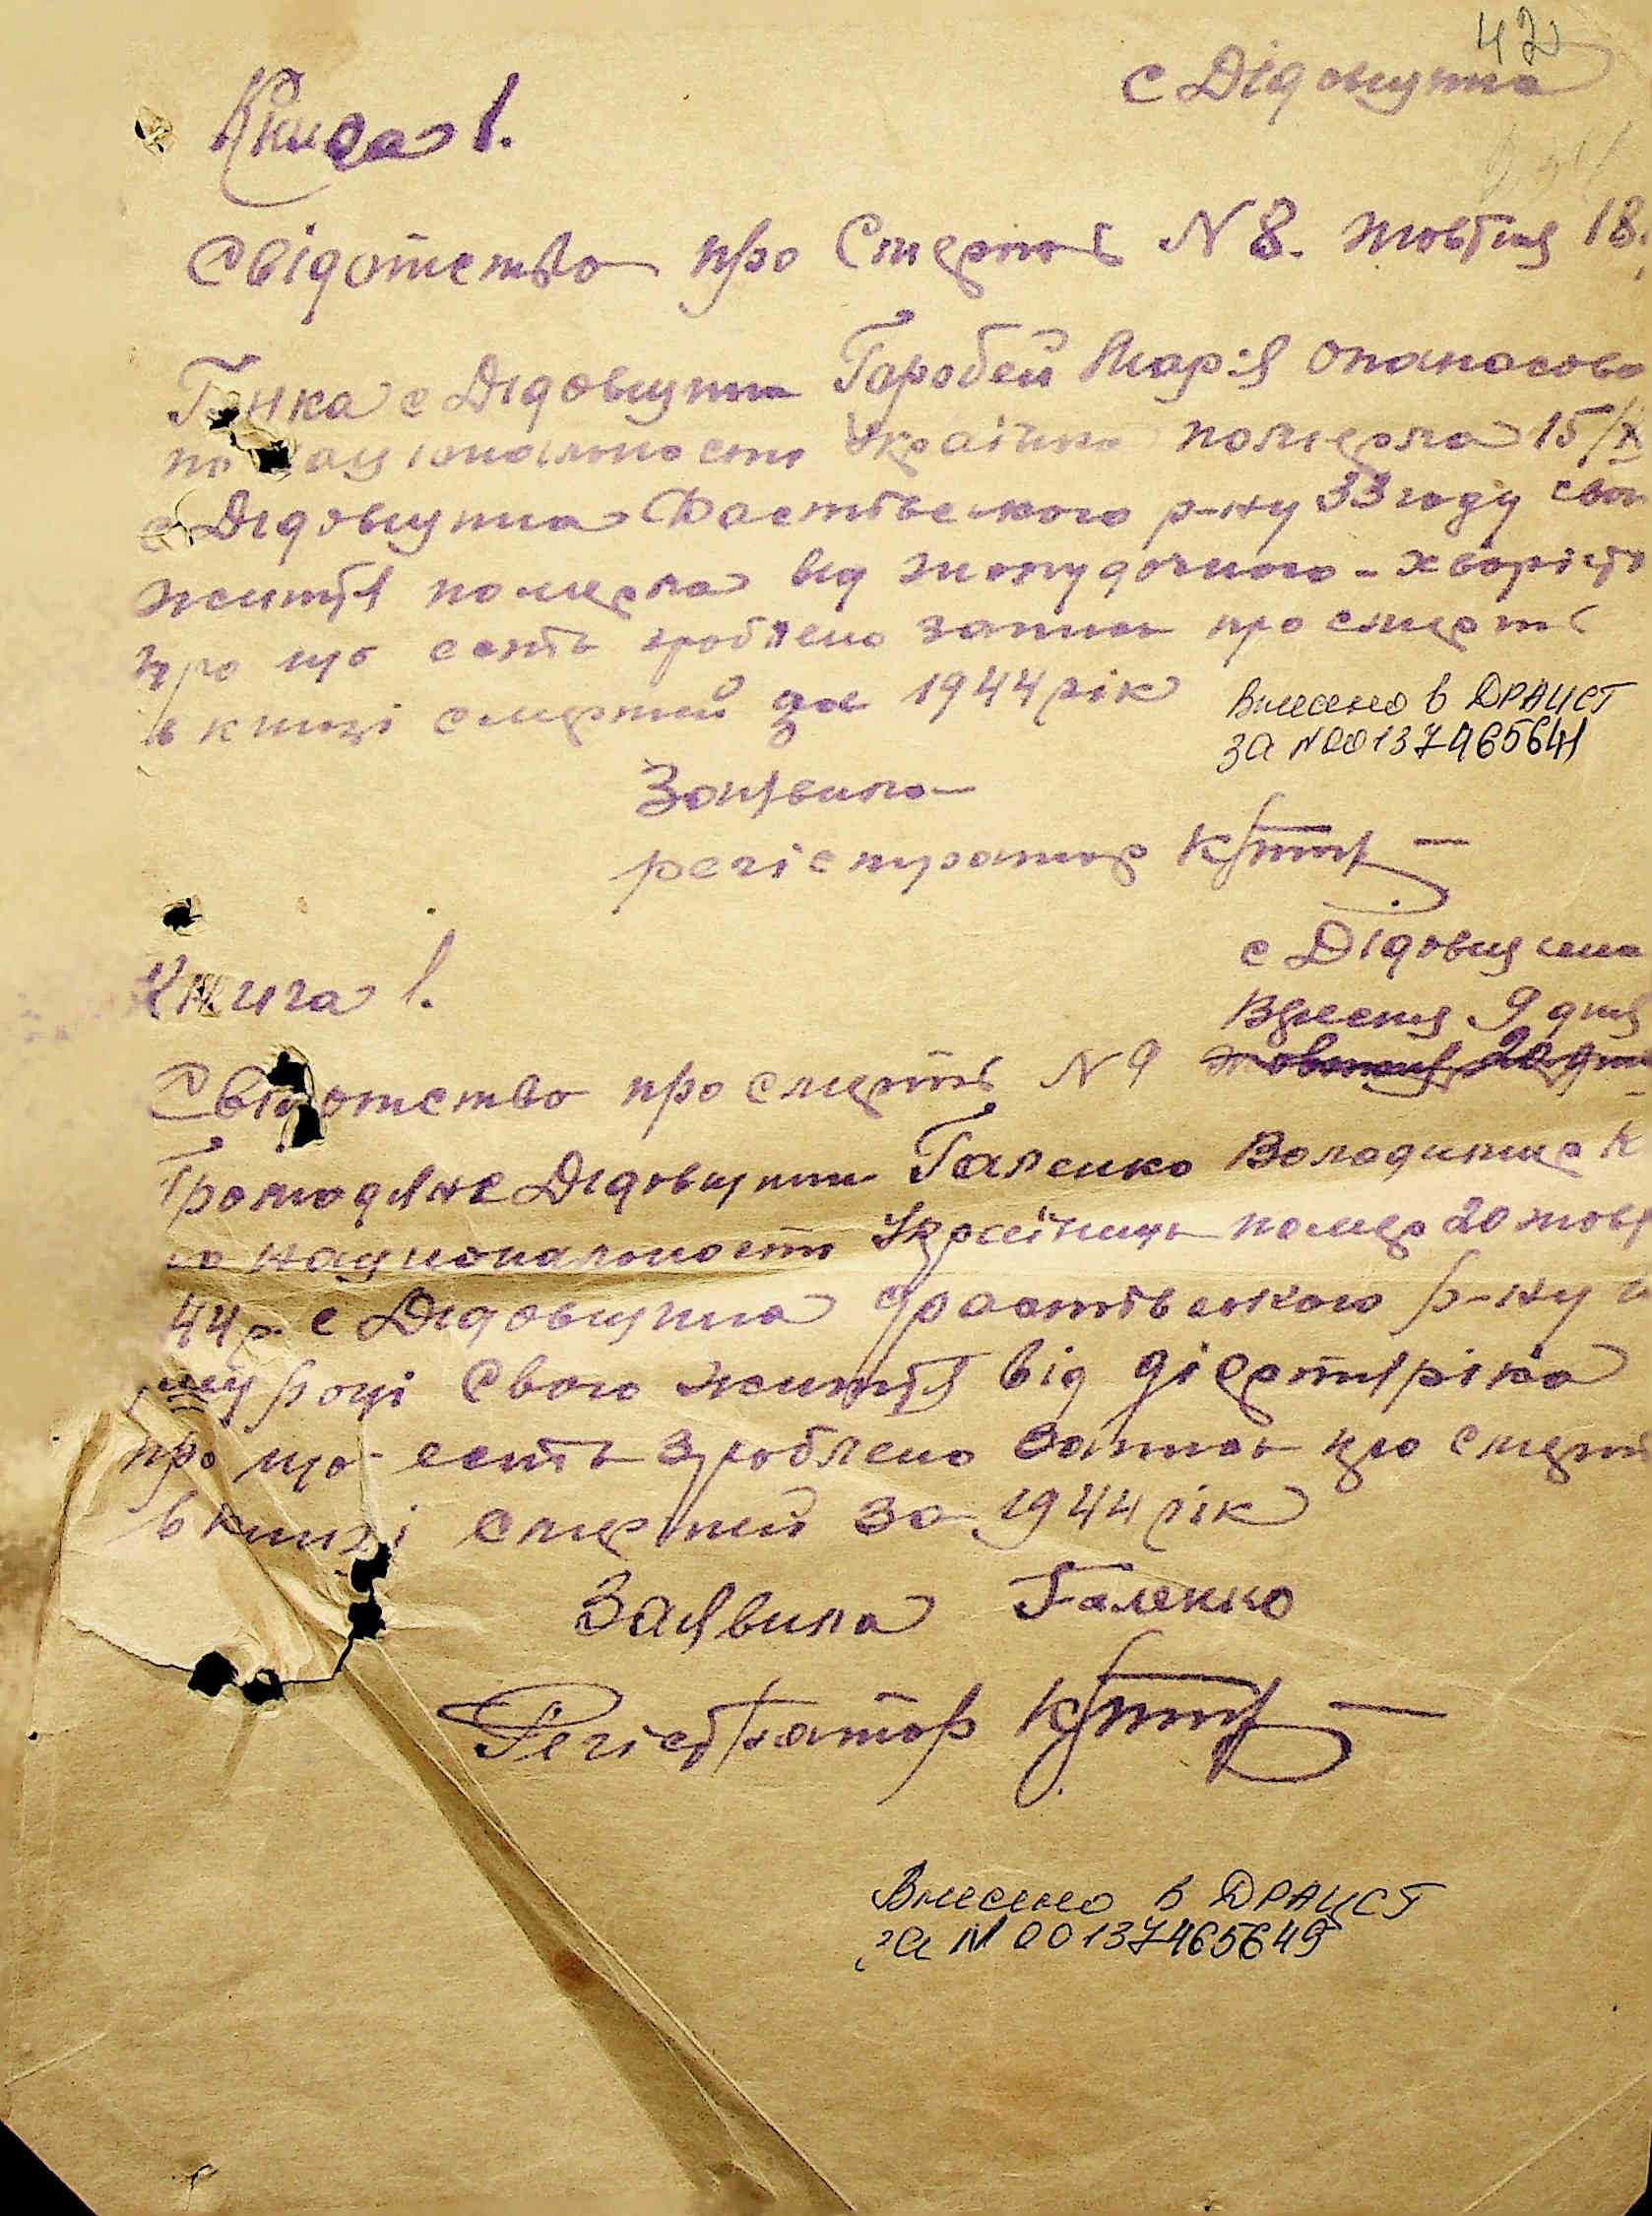 42
с Дідовщина
Книга 1.
Свідотство про Смерть N 8. Жовтня 18.
Г-нка с Дідовщина Горобей Марія Опанасова
по національности Українка померла 15/X
с Дідовщина Фастівського р-ну 33 году свого
життя померла від жолудочного-хворіття
про що єсть зроблено запись про смерть
в книзі смертей за 1944 рік
Внесено в ДРАЦСТ
за N 00137465641
Заявила
регістратор
с Дідовщина
Вресня 9 дня
Книга 1.
Свідотство про смерть N 9 Жовтня 20 дня
Громодян с Дідовщини Галенко Володимер
по национальность Українець помер 20 жовт
44р с Дідовщина Фастівського р-ну
році свого життя від
про що єсть зроблено запись про смерть
в книзі смертей за 1944 рік
Заявила Галенко
Регістратор
Внесено в ДРАЦСТ
за N 00137465649